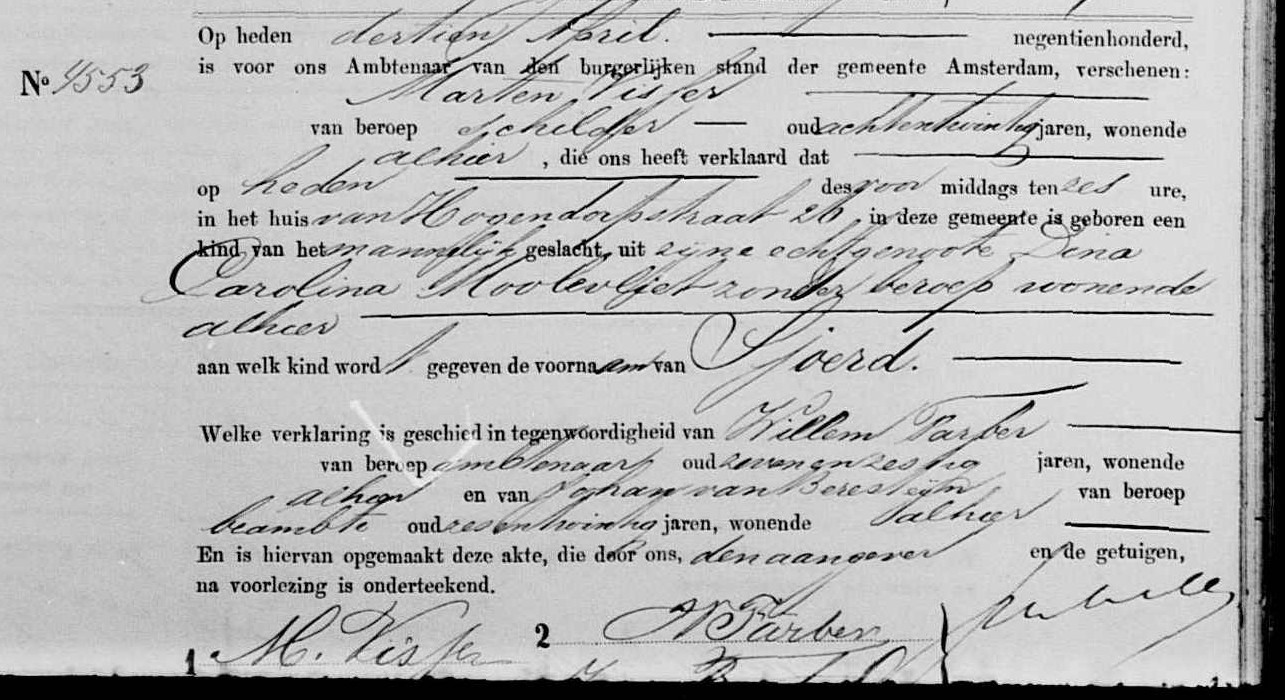 Op heden dertien April. negentienhonderd,
No 4553 is voor ons Ambtenaar van den burgerlijken stand der gemeente Amsterdam, verschenen:
Marten Visser
van beroep Schilder oud achtentwintig jaren, wonende
alhier, die ons heeft verklaard dat
op heden des voor middags ten zes ure,
in het huis van Hogendorpstraat 26, in deze gemeente is geboren een
kind van het mannelijk geslacht, uit zijne echtgenoote Dina
Carolina Moolevliet zonder beroep wonende
alhier
aan welk kind word t gegeven de voornaam van Sjoerd.
Welke verklaring is geschied in tegenwoordigheid van Willem Farber
van beroep ambtenaar oud zevenenzestig jaren, wonende
alhier en van Johan van Beresteijn van beroep
beambte oud zesentwintig jaren, wonende alhier
En is hiervan opgemaakt deze akte, die door ons, den aangever en de getuigen,
na voorlezing is onderteekend.
1 M. Visser 2 W Färber